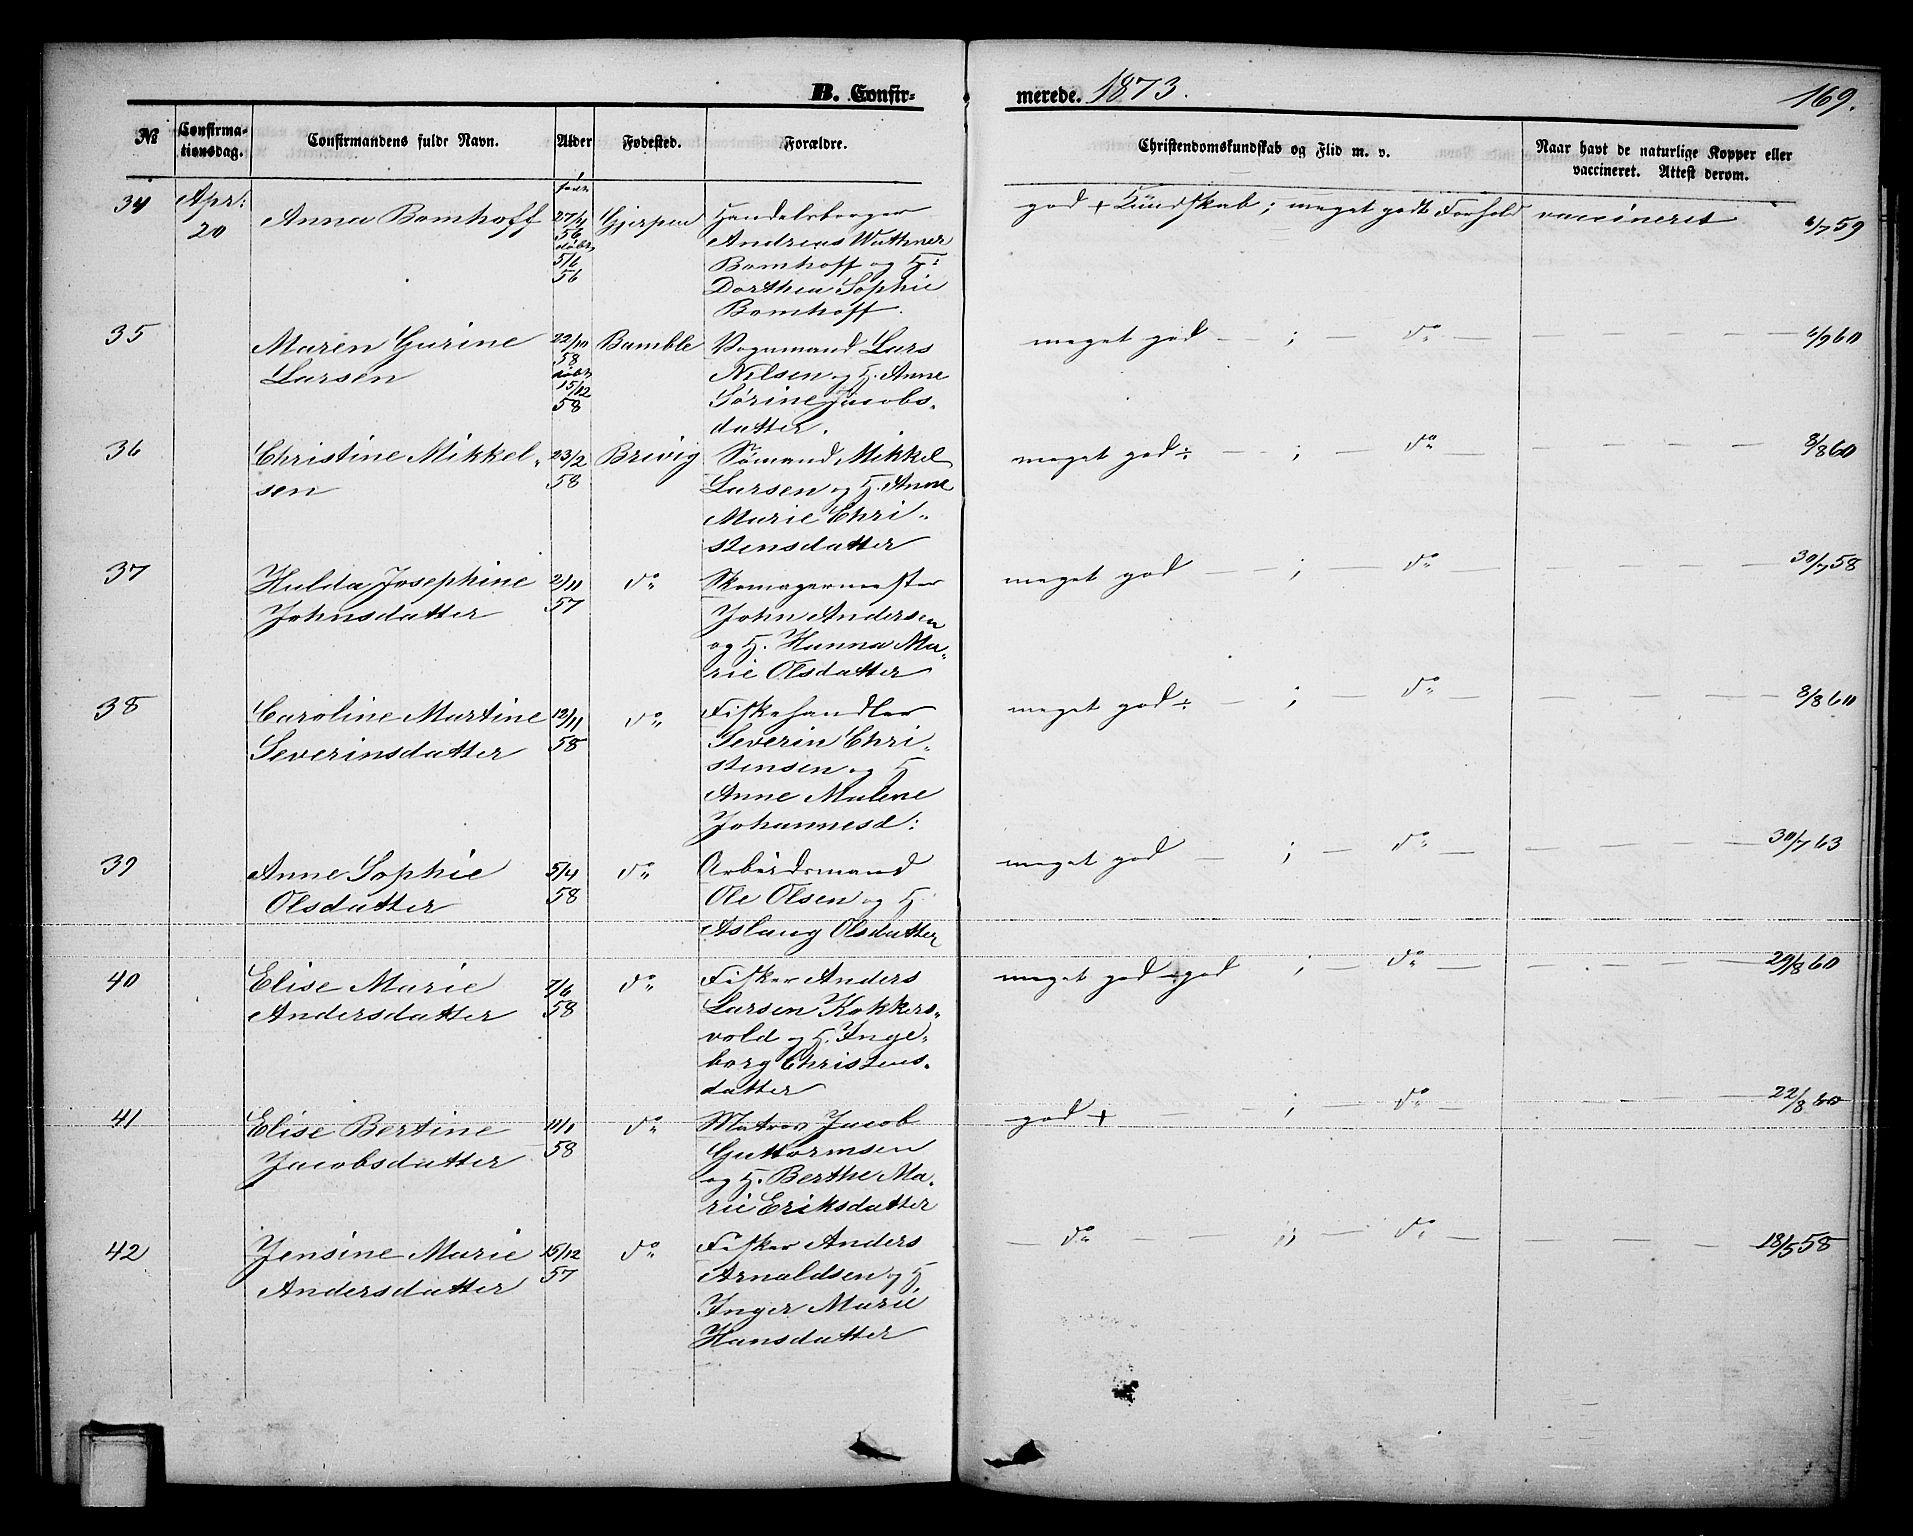 B. Confir-
merede. 1873.
169.
№ Confirma-tionsdag. Confirmandens fulde Navn. Alder Fødested. Forældre. Christendomskundskab og Flid m. v. Naar havt de naturlige Kopper eller
vaccineret. Attest derom.
34 Apr: 20 Anna Bomhoff født 27/4 56 døbt 5/6 56 Gjerpen Handelsborger god + Kundskab; meget godt Forhold vaccineret 6/7 59
Andreas Wuthner
Bomhoff og H:
Dorthea Sophie
Bomhoff.
35 Maren Gurine 22/10 58 døbt 15/12 58 Bamble Vognmand Lars meget god — ; — do — — — — — 6/9 60
Larsen Nilsen og H. Anne
Sørine Jacobs-
datter.
36 Christine Mikkel- 23/2 58 Brevig Sømand Mikkel meget god ÷ — ; — do — — — — 8/8 60
sen Larsen og H. Anne
Marie Chri-
stensdatter
37 Hulda Josephine 2/11 57 do Skomagermester meget god — — ; — do — — — — 30/7 58
Johnsdatter John Andersen
og H. Hanna Ma-
rie Olsdatter
38 Caroline Martine 12/11 58 do Fiskehandler meget god ÷ — ; — do — — — — 8/8 60
Severinsdatter Severin Chri-
stensen og H
Anne Malene
Johannesd:
39 Anne Sophie 5/4 58 do Arbeidsmand meget god — ; — do — — — — 30/7 63
Olsdatter Ole Olsen og H
Aslaug Olsdatter
40 Elise Marie 7/6 58 do Fisker Anders meget god ÷ god ; — do — — — — 29/8 60
Andersdatter Larsen Kokkers-
vold og H. Inge-
borg Christens-
datter
41 Elise Bertine 11/1 58 do Matros Jacob god + — ; — do — — — — 22/8 60
Jacobsdatter Guttormsen
og H. Berthe Ma-
rie Eriksdatter
42 Jensine Marie 15/12 57 do Fisker Anders — do — — ; — do — — — — 18/5 58
Andersdatter Arnaldsen og H.
Inger Marie
Hansdatter